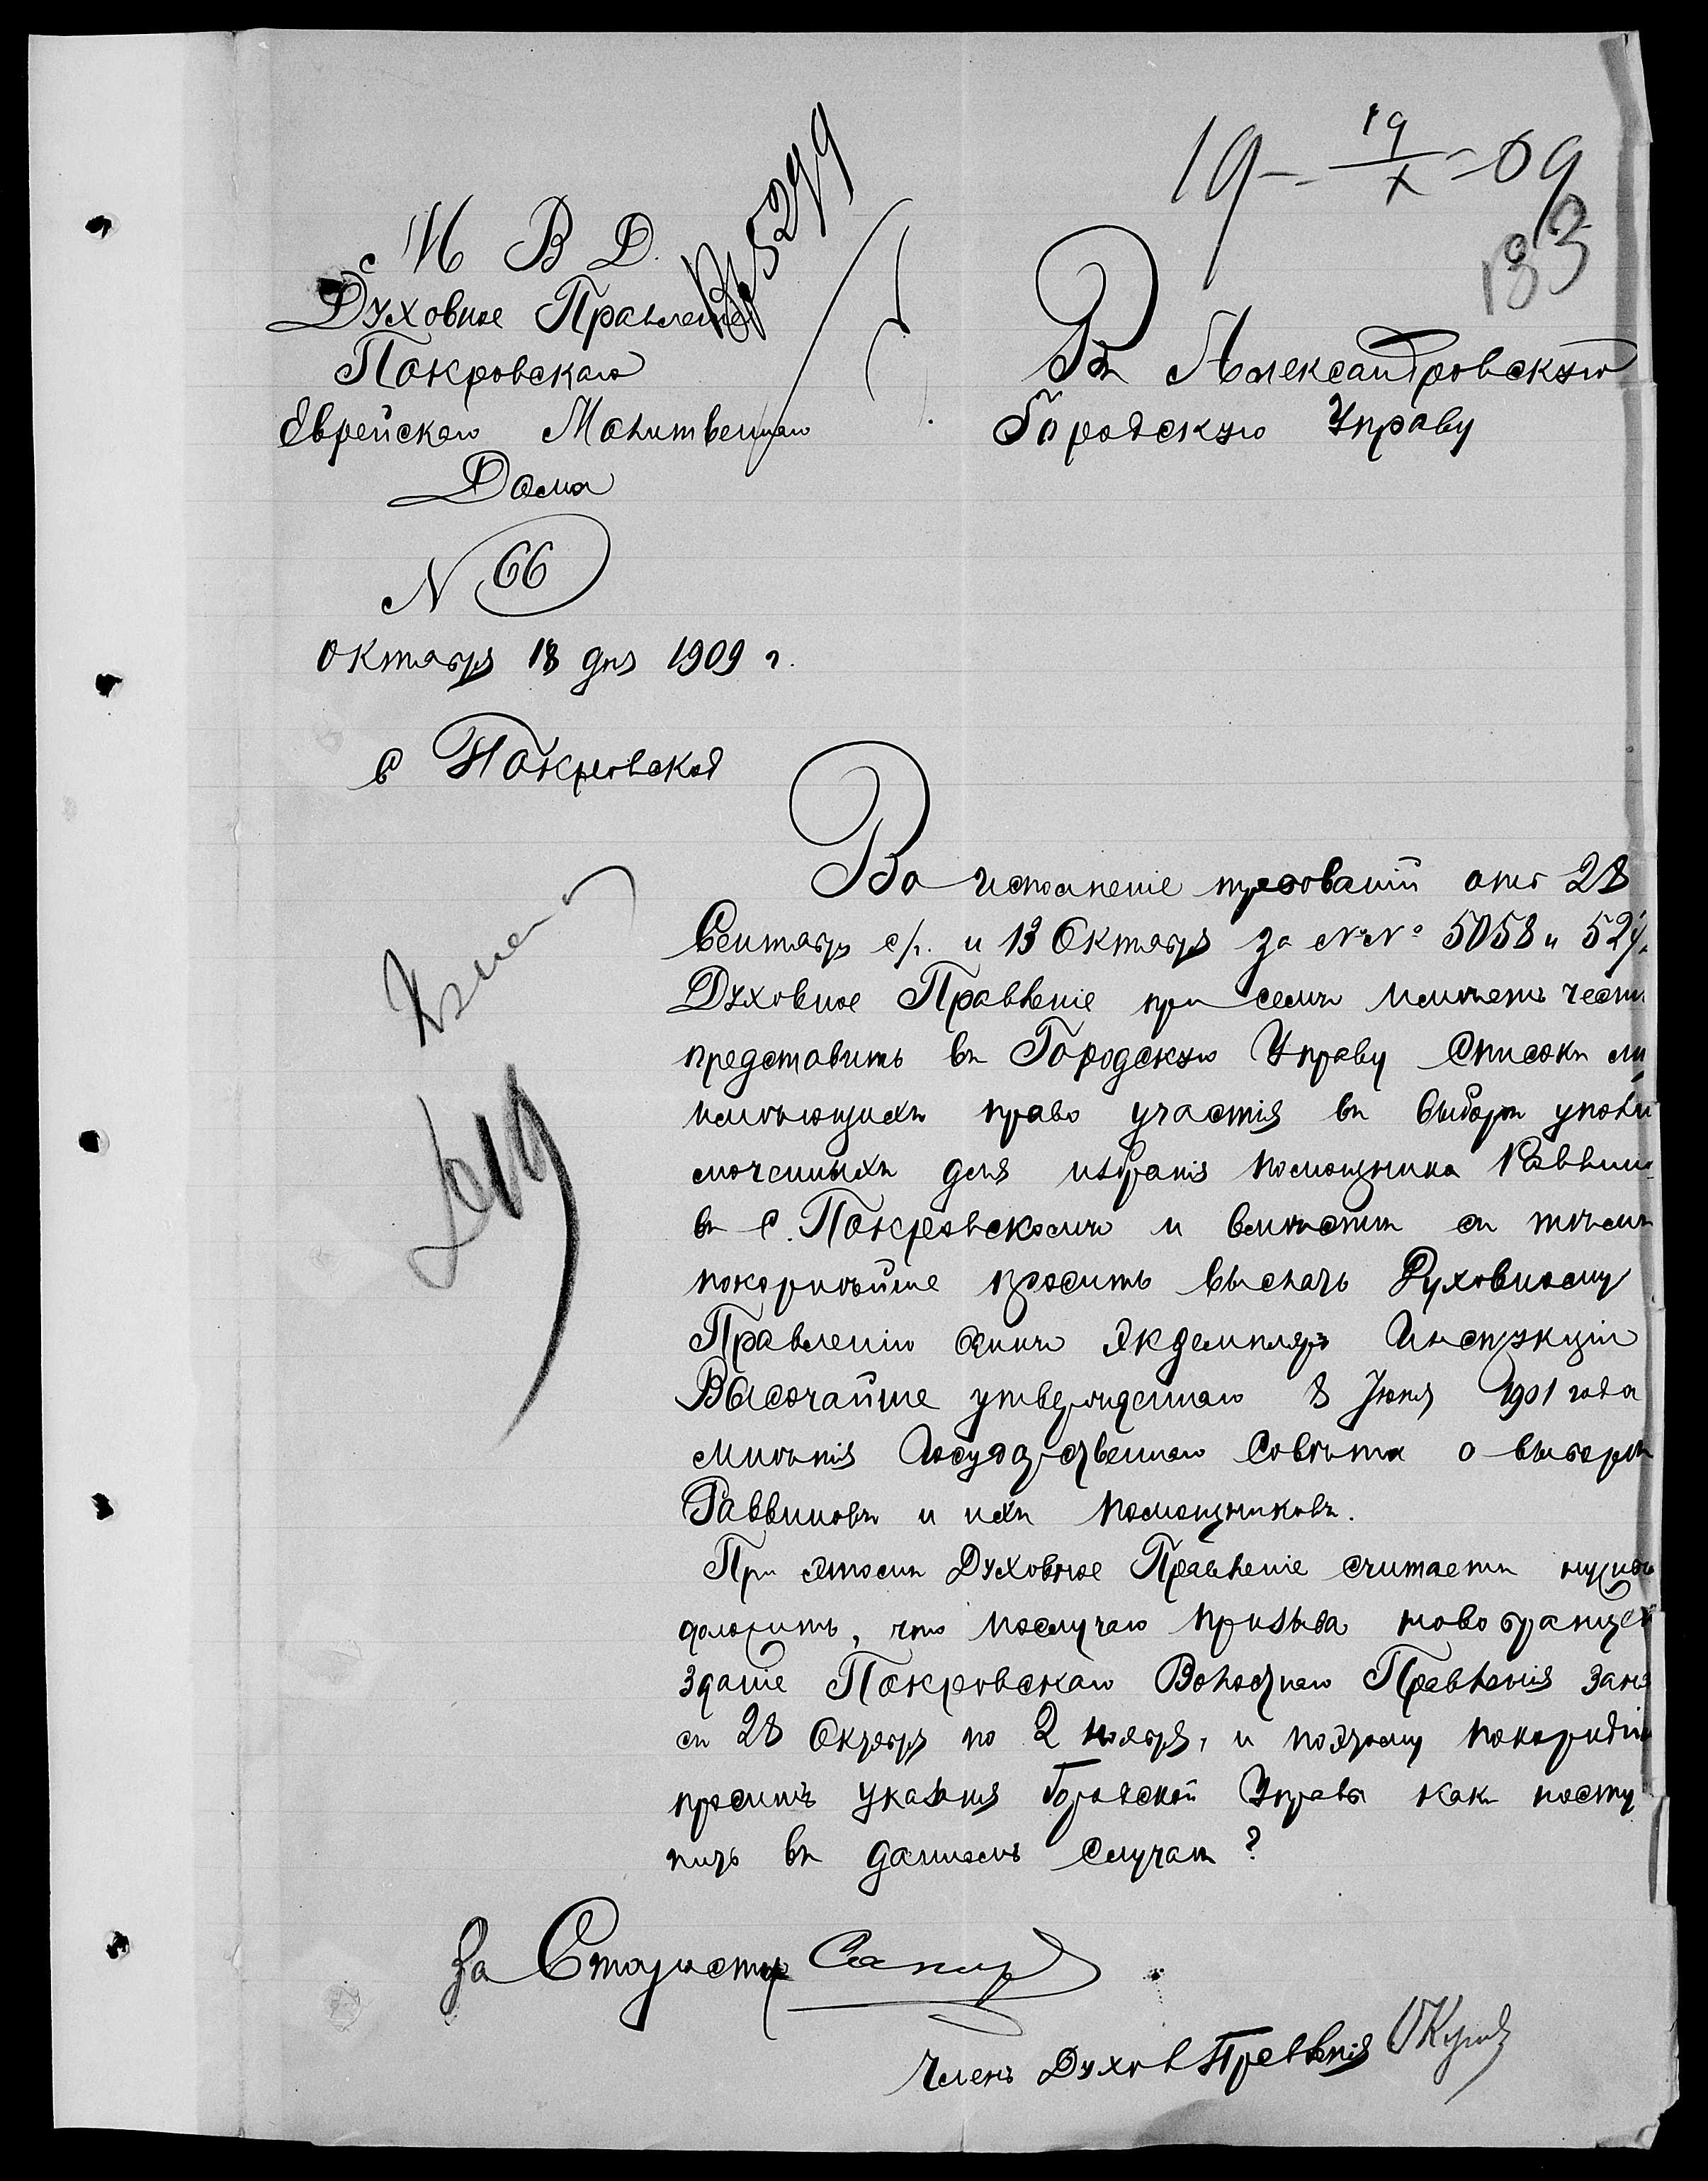 19 - 19/X - 09
133
№ 5299
М В Д.
Духовное Правленіе
Покровскаго
Еврейскаго Молитвеннаго
Дома
N 66
Октября 18 дня 1909 г.
с Покровское
Въ Александровскую
Городскую Управу
Во исполненіе требованій отъ 28
Сентября с/г. и 13 Октября за №№ 5058 и
Духовное Правленіе при семъ имѣетъ честь
представить въ Городскую Управу Списокъ
имѣющихъ право участія въ выборѣ уполно
моченныхъ для избранія помощника Раввина
въ с. Покровскомъ и вмѣстѣ съ тѣмъ
покорнѣйше проситъ выслать Духовному
Правленію одинъ экземпляръ Инструкціи
Высочайше утвержденнаго 8 Іюня 1901 года
мнѣнія Государственнаго Совѣта о выборѣ
Раввиновъ и ихъ помощниковъ.
При этомъ Духовное Правленіе считаетъ нужнымъ
доложить, что послучаю призыва новобранцевъ
зданіе Покровскаго Волостнаго Правленія
съ 28 Октября по 2 ноября, и поэтому покорнѣйше
проситъ указанія Городской Управы какъ посту
пить въ данномъ случаѣ?
За Старосту Сапир
Членъ Духов Правленія